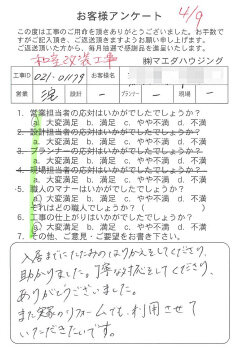 お客様アンケート
4/9
この度は工事のご用命を頂きありがとうございました。お手数で
すがご記入頂き、ご送頂きますようお願い申し上げます。
ご返送頂いた方から、毎月抽選で感謝品を進呈いたします。
和室改装工事
㈱マエダハウジング
工事ID 021-01179 お客様名
営業 設計 ー プランナー ー 現場 ー
1. 営業担当者の応対はいかがでしたでしょうか?
a. 大変満足 b. 満足 c. やや不満 d. 不満
2. 設計担当者の応対はいかがでしたでしょうか?
a. 大変満足 b. 満足 c. やや不満 d. 不満
3. プランナーの応対はいかがでしたでしょうか?
a. 大変満足 b. 満足 c. やや不満 d. 不満
4. 現場担当者の応対はいかがでしたでしょうか?
a. 大変満足 b. 満足 c. やや不満 d. 不満
5. 職人のマナーはいかがでしたでしょうか?
a. 大変満足 b. 満足 c. やや不満 d. 不満
それはどの職人でしょうか?( )
6. 工事の仕上がりはいかがでしたでしょうか?
a. 大変満足 b. 満足 c. やや不満 d. 不満
7. その他、ご意見・ご要望をお書き下さい。
入居までにたたみのはりかえをしてくださり、
助かりました。丁寧な対応をしてくださり、
ありがとうございました。
また実家のリフォームでも、利用させて
いただきたいです。